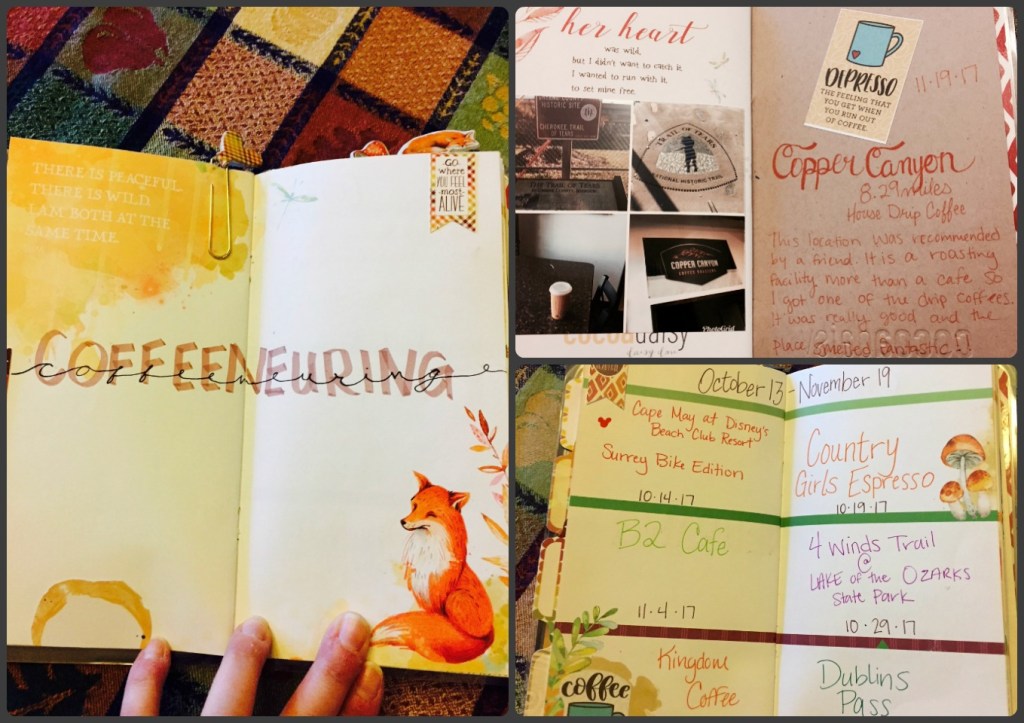 THERE IS PEACEFUL.
THERE IS WILD.
I AM BOTH AT THE
SAME TIME.
GO
where
YOU FEEL
MOST
ALIVE
COFFEENEURING
coffeeneuring
her heart
was wild,
but I didn't want to catch it.
I wanted to run with it,
to set mine free.
HISTORIC SITE
CHEROKEE TRAIL
OF TEARS
THE TRAIL OF TEARS
TRAIL OF TEARS
NATIONAL HISTORIC TRAIL
COPPER CANYON
COFFEE ROASTERS
PhotoGrid
cocoa daisy
DEPRESSO
THE FEELING THAT
YOU GET WHEN
YOU RUN OUT
OF COFFEE.
11-19-17
Copper Canyon
8.29 miles
House Drip Coffee
This location was recommended
by a friend. It is a roasting
facility more than a cafe so
I got one of the drip coffees.
It was really good and the
place smelled fantastic!!
October 13 - November 19
Cape May at Disney's
Beach Club Resort
Surrey Bike Edition
10-14-17
B2 Cafe
11-4-17
Kingdom
Coffee
coffee
Country
Girls Espresso
10-19-17
4 Winds Trail
@
LAKE of the OZARKS
State Park
10-29-17
Dublins
Pass